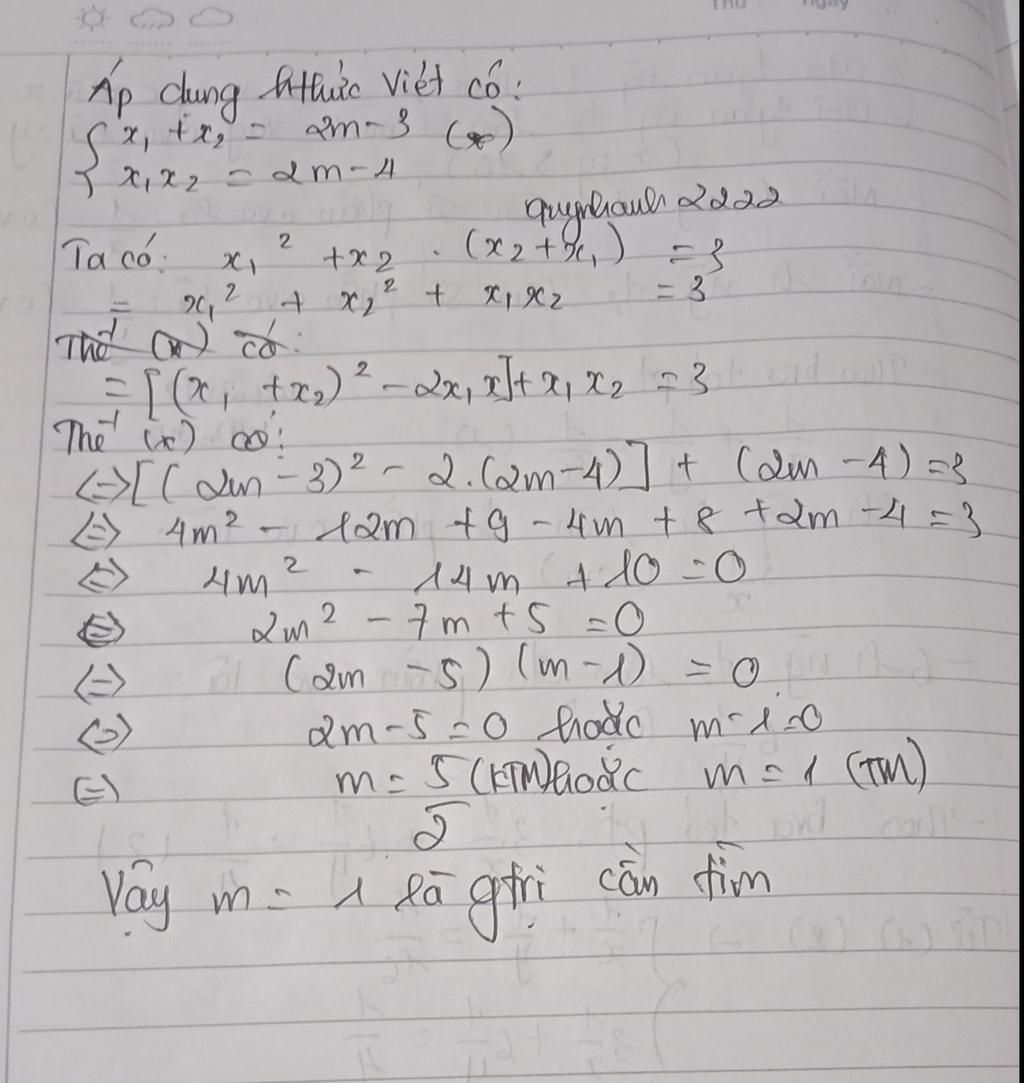 Thứ Ngày
Áp dụng hthức Viét có:
{ x₁ + x₂ = 2m - 3 (*)
x₁x₂ = 2m - 4
quynhanh 2222
Ta có: x₁² + x₂ . (x₂ + x₁) = 3
= x₁² + x₂² + x₁x₂ = 3
Thế (*) có:
= [(x₁ + x₂)² - 2x₁x] + x₁x₂ = 3
Thế (*) có:
<=> [(2m - 3)² - 2.(2m - 4)] + (2m - 4) = 3
<=> 4m² - 12m + 9 - 4m + 8 + 2m - 4 = 3
<=> 4m² - 14m + 10 = 0
<=> 2m² - 7m + 5 = 0
<=> (2m - 5) (m - 1) = 0
<=> 2m - 5 = 0 hoặc m - 1 = 0
<=> m = 5/2 (KTM) hoặc m = 1 (TM)
Vậy m = 1 là gtrị cần tìm